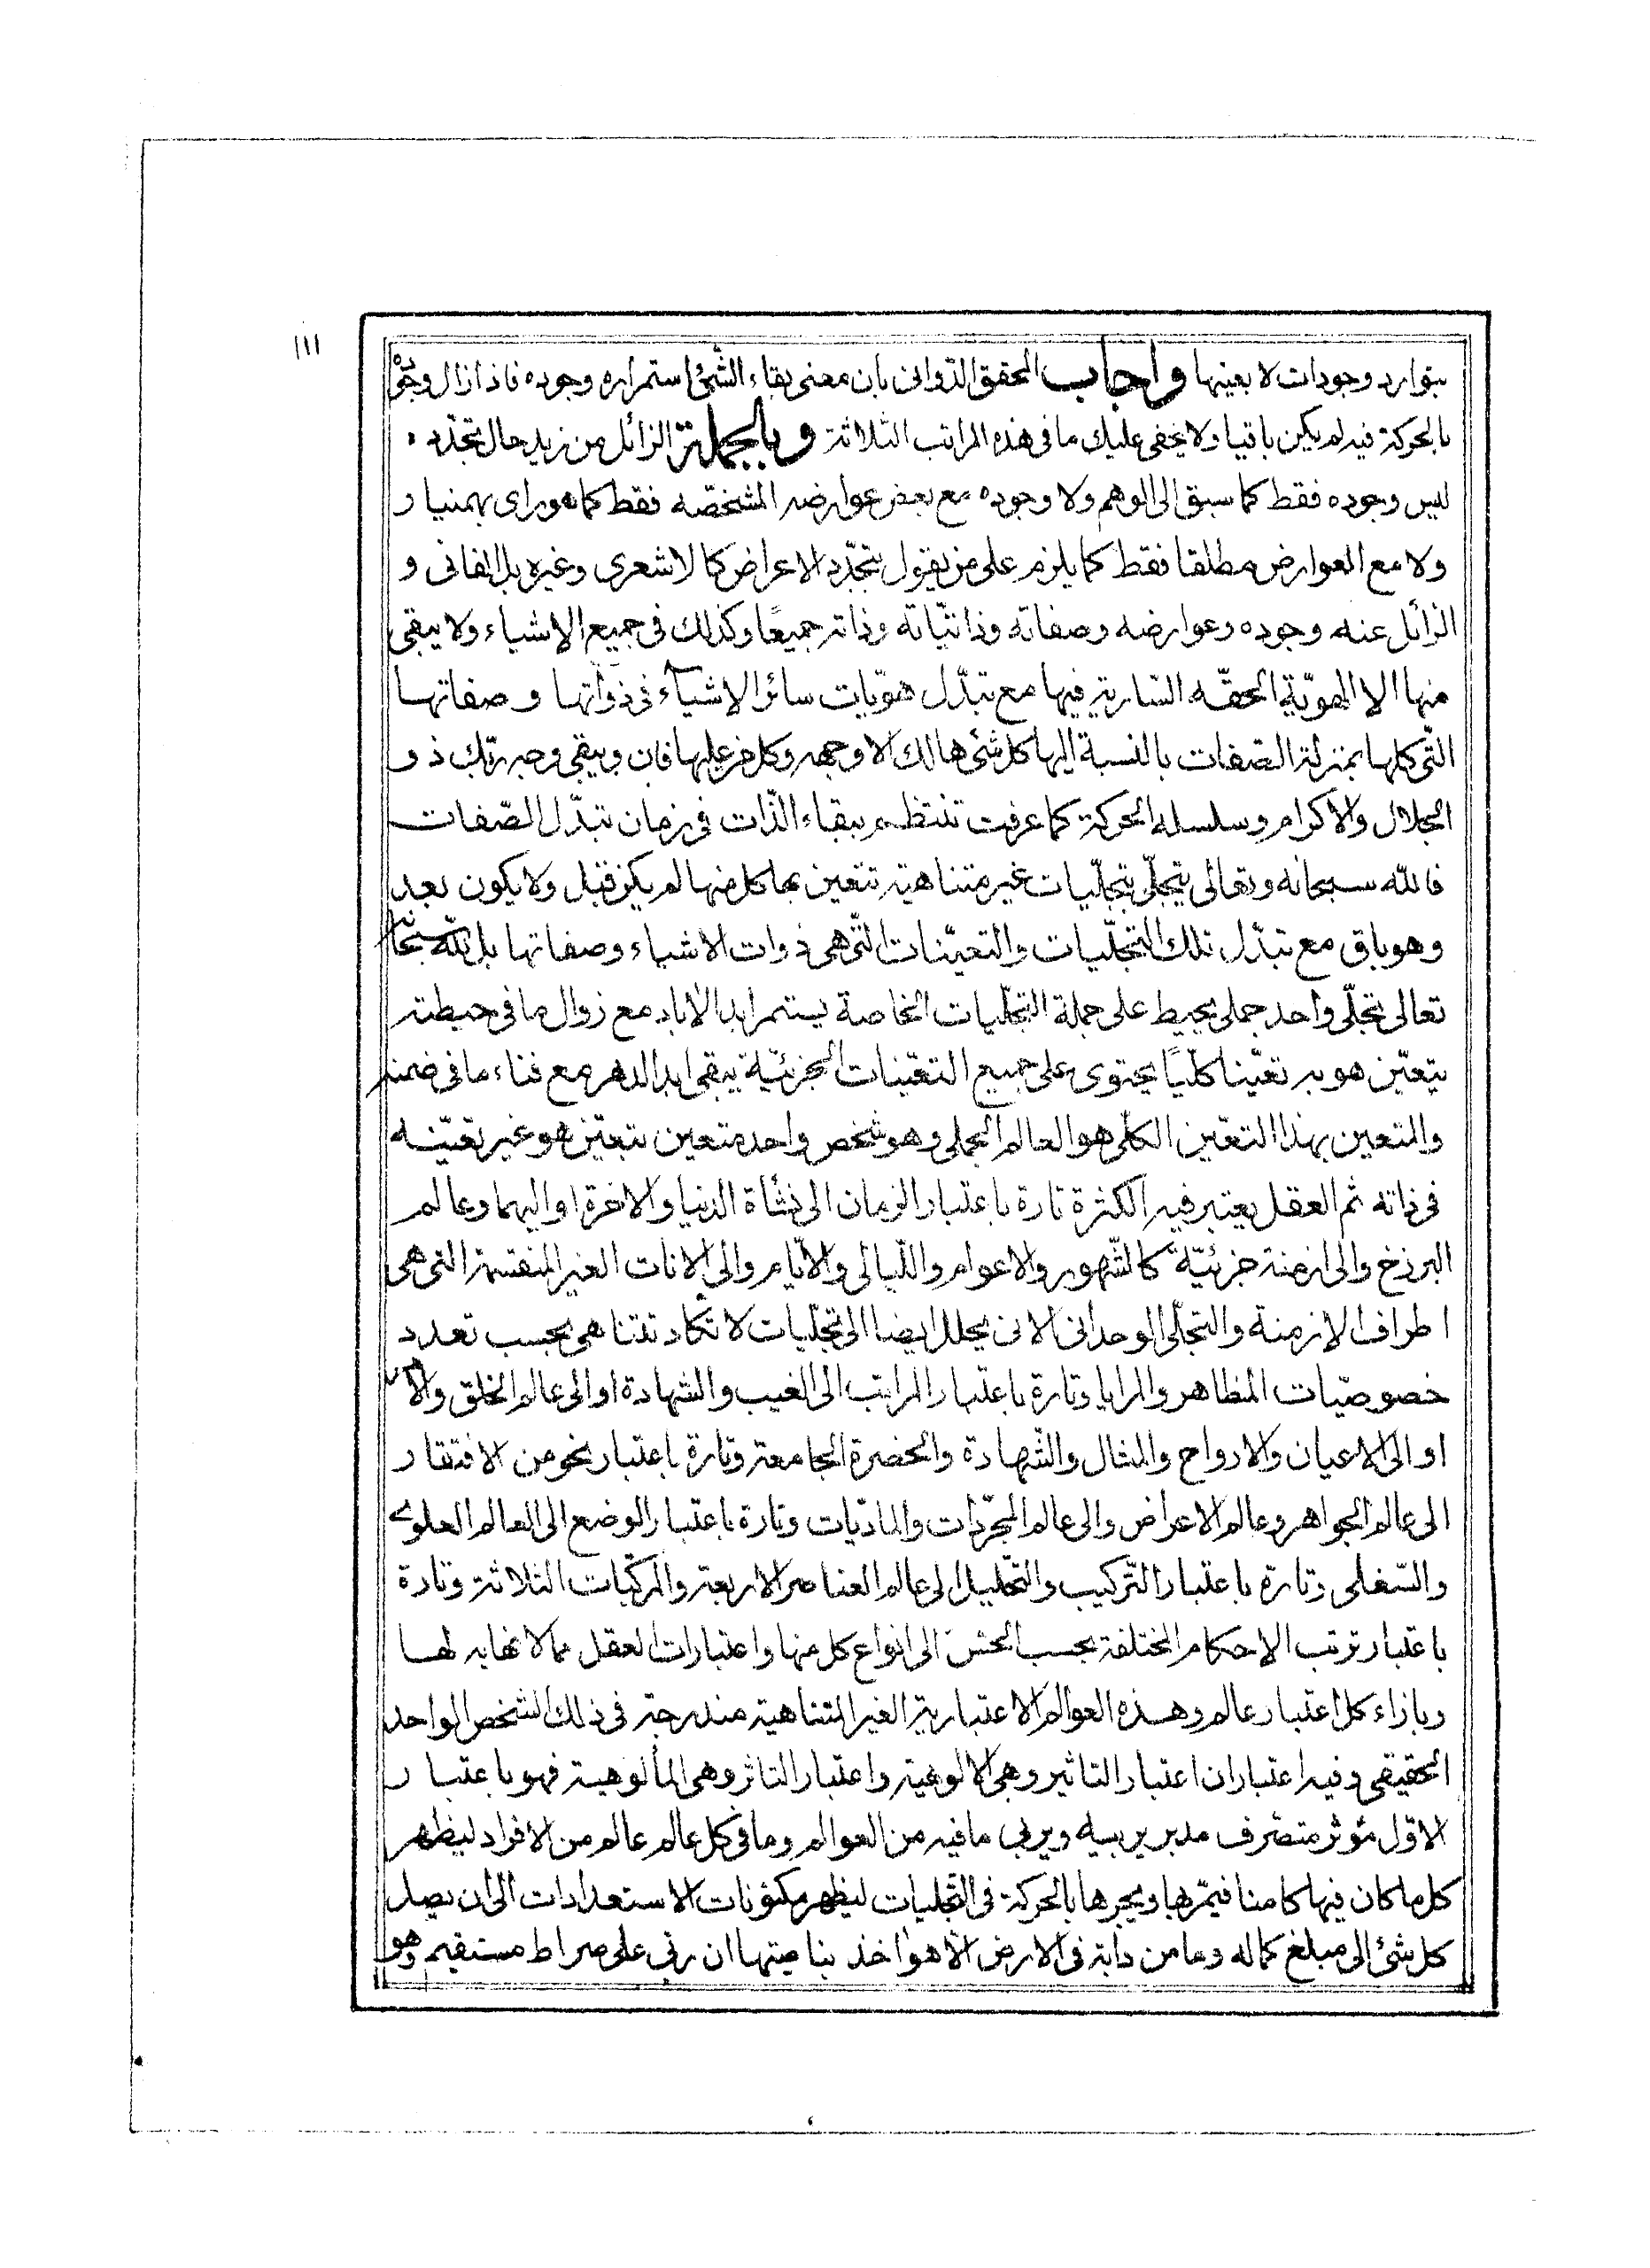 ١١١
بتوارد وجودات لا بعينها واجاب المحقق الدّوانی بان معنی بقاء الشّئ استمراره وجوده فاذا زال وجوده
بالحركة فيه لم يكن باقيا ولا يخفی عليك ما فی هذه المراتب الثلاثة وبالجملة الزائل من زيد حال تجدّده
ليس وجوده فقط كما سبق الی الوهم ولا وجوده مع بعض عوارضه المشخّصه فقط كما هو رای بهمنيار
ولا مع العوارض مطلقا فقط كما يلزم علی من يقول بتجدّد الاعراض كالاشعری وغيره بل الفانی و
الزائل عنه وجوده وعوارضه وصفاته وذاتيّاته وذاته جميعًا وكذلك فی جميع الاشياء ولا يبقی
منها الا الهويّة الحقّه السّارية فيها مع تبدّل هويّات سائر الاشيآء فی ذواتها وصفاتها
الّتی كلها بمنزلة الصّفات بالنسبة اليها كل شئ هالك الا وجهه وكل من عليها فان ويبقی وجه ربّك ذو
الجلال والاكرام وسلسله الحركة كما عرفت تنتظم ببقاء الذّات فی زمان تبدّل الصّفات
فاللّه سبحانه وتعالی يتجلّی بتجلّيات غير متناهية تتعين بها كل منها لم يكن قبل ولا يكون بعد
وهو باق مع تبدّل تلك التجلّيات والتعيّنات الّتی هی ذوات الاشياء وصفاتها بل للّه سبحانه
تعالی تجلّی واحد جملی يحيط علی جملة التجلّيات الخاصة يستمر ابد الآباد مع زوال ما فی حيطته
يتعيّن هو به تعيّنا كلّيًا يحتوی علی جميع التعيّنات الجزئيّة يبقی ابد الدهر مع فناء ما فی ضمنه
والمتعين بهذا التعيّن الكلّی هو العالم الجملی وهو شخص واحد متعين بتعيّن هو غير تعيّنه
فی ذاته ثم العقل يعتبر فيه الكثرة تارة باعتبار الزمان الی نشأة الدنيا والاخرة او اليهما وعالم
البرزخ والی ازمنة جزئيّة كالشّهور والاعوام واللّيالی والايّام والی الانات الغير المنقسمة التی هی
اطراف الازمنة والتجلّی الوحدانی الانی يحلل ايضا الی تجلّيات لا تكاد تتناهی بحسب تعدد
خصوصيّات المظاهر والمرايا وتارة باعتبار المراتب الی الغيب والشهادة او الی عالم الخلق والامر
او الی الاعيان والارواح والمثال والشّهادة والحضرة الجامعة وتارة باعتبار نحو من الافتقار
الی عالم الجواهر وعالم الاعراض والی عالم المجرّدات والمادّيات وتارة باعتبار الوضع الی العالم العلوی
والسّفلی وتارة باعتبار التّركيب والتّحليل الی عالم العناصر الاربعة والمركّبات الثلاثة وتارة
باعتبار ترتب الاحكام المختلفة بحسب الحسّ الی انواع كل منها واعتبارات العقل مما لا نهايه لها
وبازاء كل اعتبار عالم وهذه العوالم الاعتبارية الغير المتناهية مندرجة فی ذلك الشخص الواحد
الحقيقی وفيه اعتباران اعتبار التاثير وهی الالوهية واعتبار التاثر وهی المألوهية فهو باعتبار
الاوّل مؤثر متصّرف مدبر يربيه ويربی ما فيه من العوالم وما فی كل عالم عالم من الافراد ليظهر
كل ما كان فيها كامنا فيمّرها ويجرها بالحركة فی التّجليات ليظهر مكنونات الاستعدادات الی ان يصل
كل شئ الی مبلغ كماله وما من دابة فی الارض الّا هو اخذ بناصيتها ان ربّی علی صراط مستقيم وهو